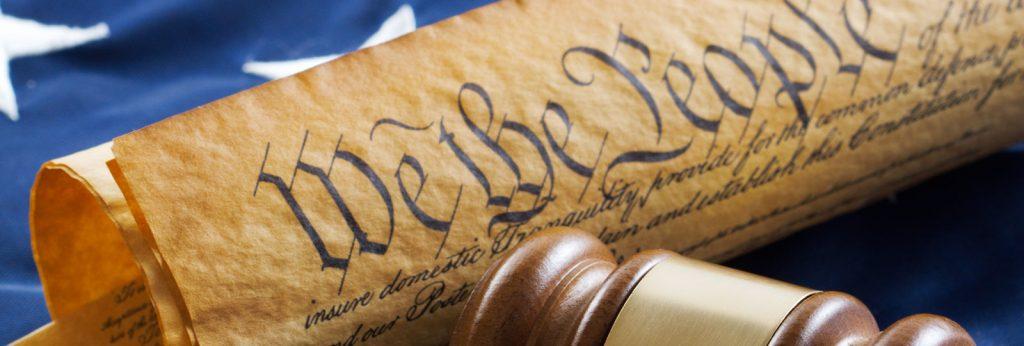 We the People of the
insure domestic Tranquility, provide for the common defence,
and our and establish this Constitution for